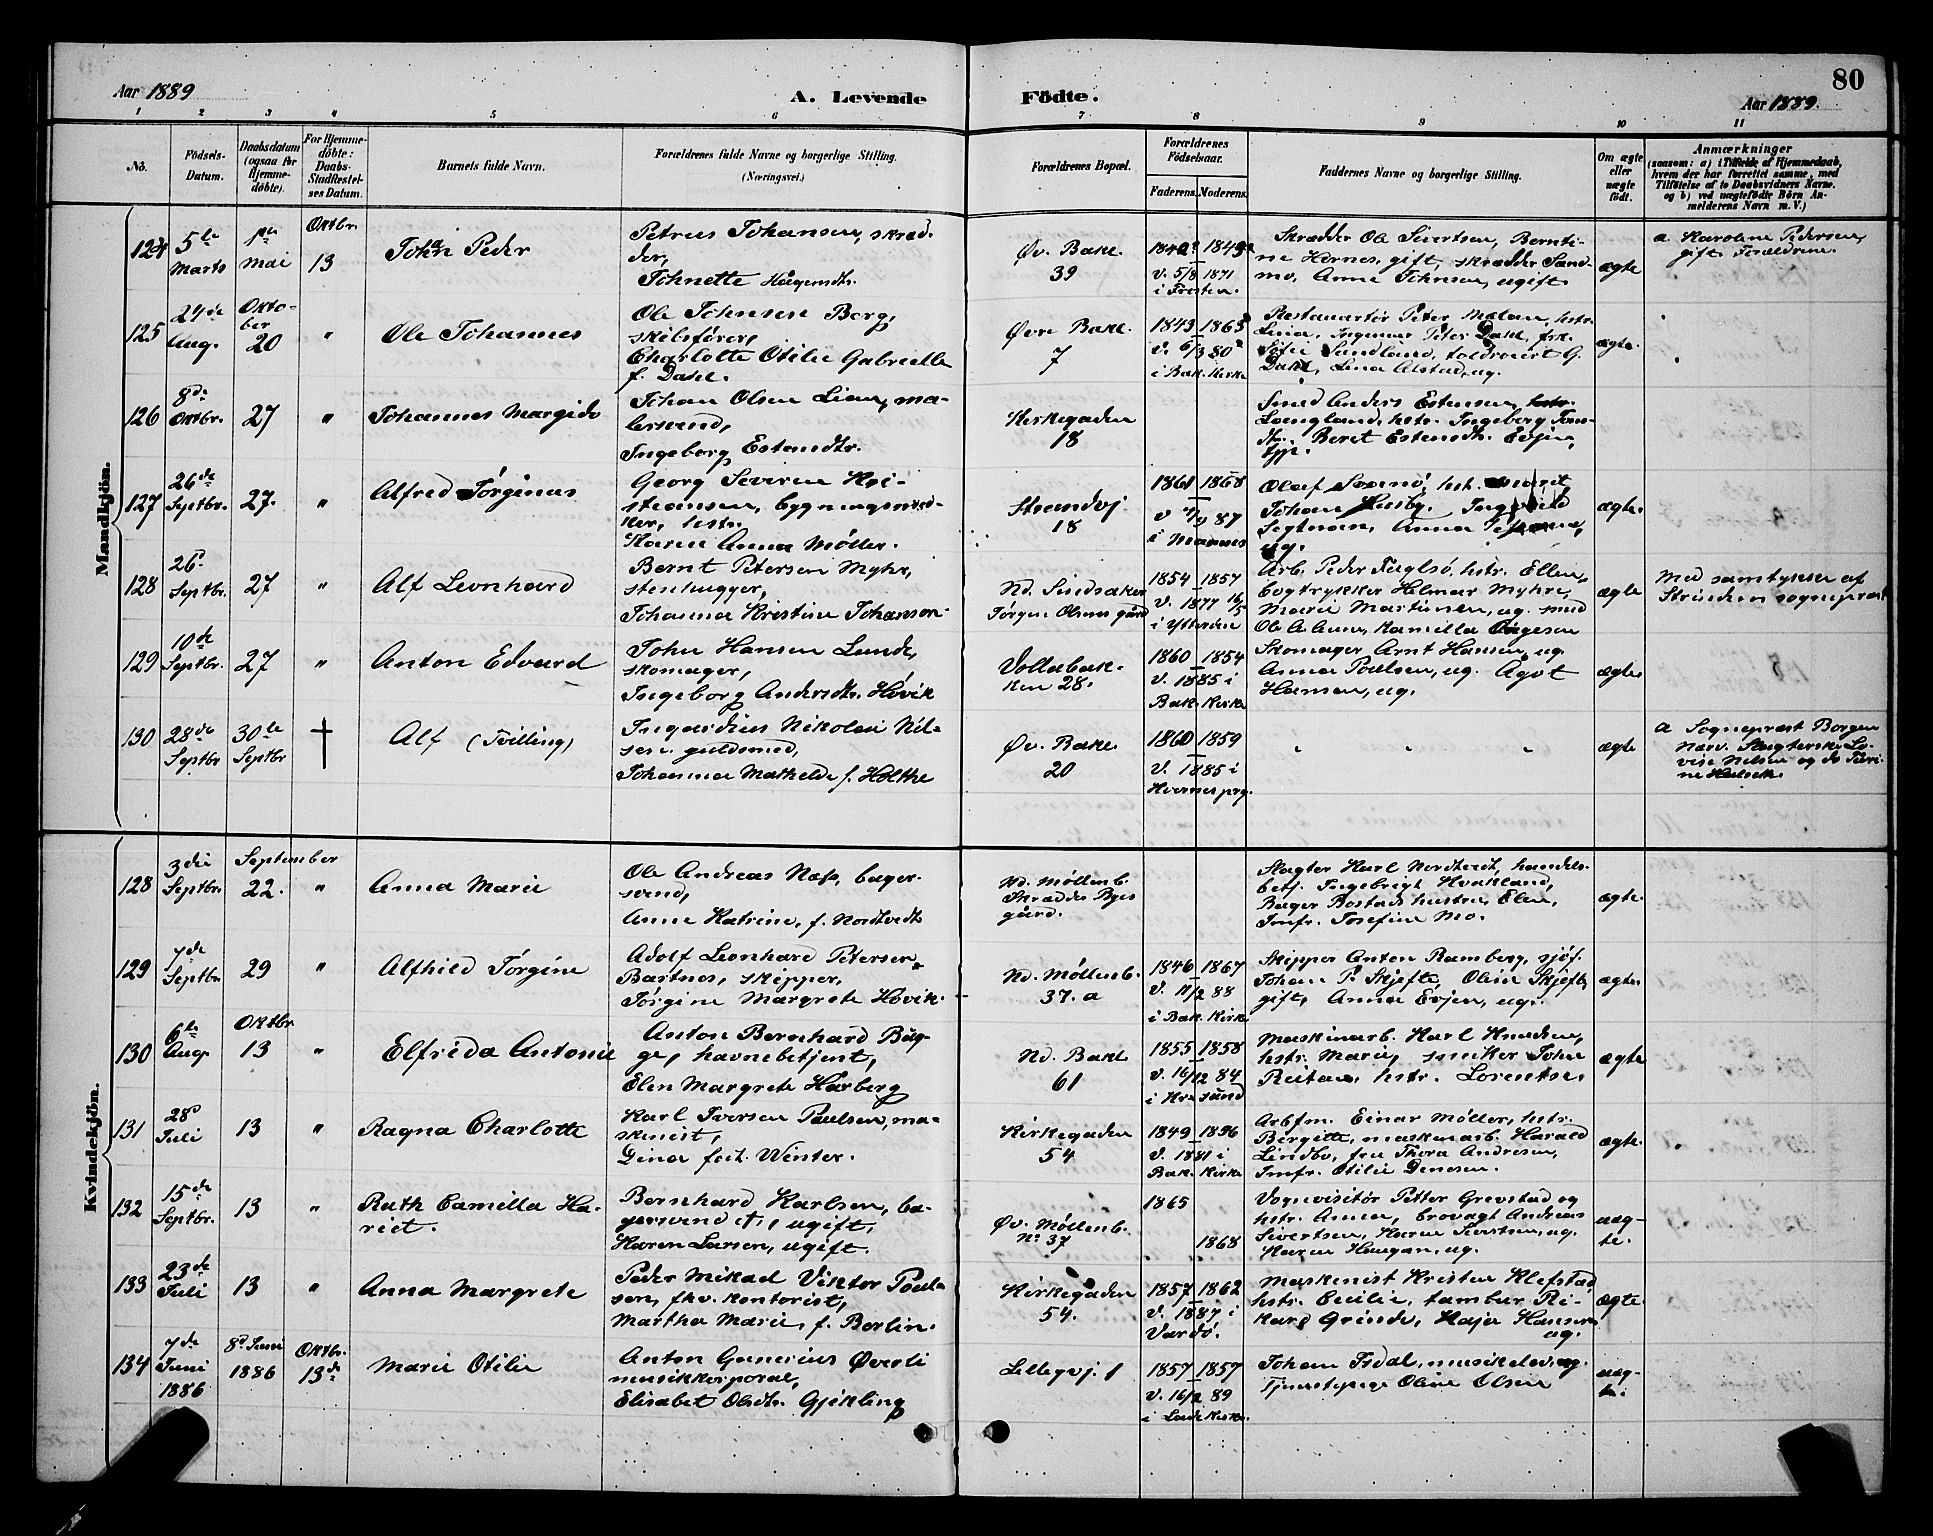 Aar 1889
A. Levende Födte.
80
Aar 1889.
1 2 3 4 5 6 7 8 9 10 11
No.
Födsels-
Datum.
Daabsdatum
(ogsaa for
Hjemme-
döbte).
For Hjemme-
döbte:
Daabs-
Stadfæstel-
ses Datum.
Barnets fulde Navn.
Forældrenes fulde Navne og borgerlige Stilling.
(Næringsvei.)
Forældrenes Bopæl.
Forældrenes
Födselsaar.
Faderens. Moderens.
Faddernes Navne og borgerlige Stilling.
Om ægte
eller
uægte
födt.
Anmærkninger
(saasom: a) i Tilfælde af Hjemmedaab,
hvem der har forrettet samme, med
Tilföielse af to Daabsvidners Navne,
og b) ved uægtefödte Börn An-
melderens Navn m. V.)
Mandkjön.
124
5te
Marts
1ste
Mai
Oktbr.
13
Johan Peder
Petrus Johansen, skræd-
der,
Johnette Hågensdtr.
Öv. Bakl.
39
1842 1849
v. 5/8 1871
i Frosten.
Skrædder Ole Sivertsen, Bernti-
ne Hernes, gift, skrædder Sand-
mo, Anne Johnsen, ugift
ægte
a. Karoline Pedersen,
gift. Forældrene.
125
24de
Aug.
Okto-
ber
20
"
Ole Johannes
Ole Johnsen Borg,
skibsfører,
Charlotte Otilie Gabrielle
f. Dahl.
Övre Bakl.
7
1843 1863
v. 6/3 80
i Bak. Kirke
Restauratør Peter Malen, hstr.
Lina, Ingeniør Peter Dahl, frk.
Sofie Sundland, toldroert G.
Dahl, Lina Alstad, ug.
ægte.
126
8de
Oktbr.
27
"
Johannes Margido
Johan Olsen Lien, ma-
lersvend,
Ingeborg Estensdtr.
Kirkegaden
18
Smed Anders Estensen, hstr.
Loengland, hstr. Ingeberg Tons-
Beret Estensdtr. Evjen,
127
26de
Septbr.
27.
"
Alfred Jørginus
Georg Severin Kri-
stiansen, bygningssned-
ker, hstr.
Karen Anna Møller.
Strandvj.
18
1861 1868
v. 87
i Mannes
Olaf hst.
Johan Husby, Ingebrld
Segtnan, Anna
ug.
ægte
128
26de
Septbr.
27
"
Alf Leonhard
Bernt Petersen Myhr,
stenhugger,
Johanna Kristine Johansen
Nd. Sindsaker
Jörgen Olsens gård
1854 1857
v. 1877 16/5
i Ytterøen
Arb. Peder Fuglsö, hstr. Ellen,
bogtrykker Helmar Myhre,
Marie Martinsen, ug. smed
Ole A. Aune, Kamilla Ingesen
ægte
Med samtykke af
Strinden sognepræst
129
10de
Septbr.
27
"
Anton Edvard
John Hansen Lunde,
skomager,
Ingeborg Andersdtr. Høvik
Vollabak-
ken 28.
1860 1854
v. 1885 i
Bak. Kirke
Skomager Arnt Hansen, ug.
Anna Poulsen, ug. Agot
Hansen, ug.
ægte
130
28de
Septbr
30te
Septbr
†
Alf (Tvilling)
Ingardius Nikolai Nil-
sen guldsmed,
Johanna Mathilde f. Holthe
Öv. Bakl.
20
1860 1859
v. 1885 i
Hvernes prg.
" " "
ægte
a Sognepræst Borgen
Nærv. Slagterske Lo-
vise Nilsen og do Turi-
ne Hulsek.
Kvindekjön.
128
3die
Septbr.
September
22.
"
Anna Marie
Ole Andreas Næss, bager-
svend,
Anne Katrine, f. Nordtvedt
Nd. Möllenb.
Skrædder Byes
gård.
Slagter Karl Nordtvedt, handels-
betj. Ingebrigt Hvakland,
Bager Bostads hustru Elen,
Jmfr. Josefine Mo.
ægte.
129
7de
Septbr.
29
"
Alfhild Jørgine
Adolf Leonhard Petersen
Bartnes, skipper,
Jørgine Margrete Høvik.
Nd. Möllenb.
37. a
1846 1867
v. 11/2 88
i Bak. Kirke
Skipper Anton Ramberg, sjöf.
Johan P. Skjefte, Oline Skjefte,
gift, Anna Evjen, ug.
ægte.
130
6te
Aug.
Oktbr.
13
"
Elfrida Antonie
Anton Bernhard Büg-
ge, havnebetjent,
Elen Margrete Hårberg
Nd. Bakl.
61
1855 1858
v. 16/12 84
i Hvæsund
Maskinarb. Karl Knudsen,
hstr. Marie, snedker John
Reitan, hstr. Lorentse.
ægte
131
28de
Juli
13
"
Ragna Charlotte
Karl Iversen Paulsen, ma-
skinist,
Dina født Winter.
Kirkegaden
54
1849 1856
v. 1881 i
Bak. Kirke
Arbfm. Einar Møller, hstr.
Birgitte, maskinarb. Harald
Lindbo, fru Thora Andresen,
Jmfr. Otilie Denosen.
ægte.
132
15de
Septbr.
13
"
Ruth Camilla Ha-
riet.
Bernhard Karlsen, ba-
gersvend, ugift,
Karen Larsen, ugift.
Öv. Möllenb.
No 37
1865
1868
Vognvisitör Petter Grevstad og
hstr. Anna, brovagt Andreas
Sivertsen, Karen Sivertsen, ug.
Karen Haugan, ug.
uæg-
te.
133
23de
Juli
13
"
Anna Margrete
Peder Mikael Viktor Poul-
sen, fhv. kontorist,
Martha Marie, f. Berlin.
Kirkegaden
54.
1857 1862
v. 1887 i
Vardö.
Maskinist Kristen Klefstad,
hstr. Cecilie, tambur Ri-
kard Grinde, Maja Hansen
ug.
ægte.
134
7de
Juni
1886
8de Juni
1886
Oktbr.
13de
Marie Otilie
Anton Gunerius Överli
musikkorporal,
Elisabet Olsdtr. Gjekling
Lillegvj. 1
1857 1857
v. 16/2 89
i Lade Kirke.
Johan Isdal, musikelev, ug.
Tjenestepige Oline Olsen
uæg-
te.